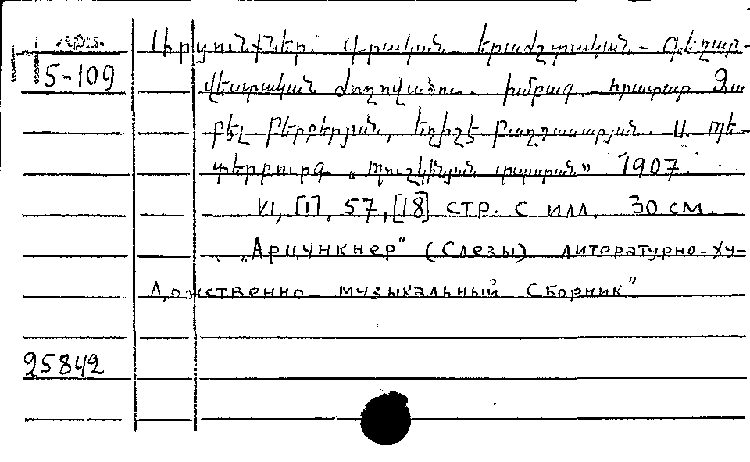 Арм.
П 5-109
Արցունքներ. Գրական երաժշտական - գեղար-
վեստական ժողովածու. խմբագ. հրատար Զա
բել Բերբերյան, Եղիշէ Բաղդասարյան. Ս. Պե-
տերբուրգ „Պուշկինյան տպարան" 1907
VI, [1], 57, [18] стр. с илл. 30 см
„Арцункнер" (Слезы) литературно-ху-
дожественно музыкальный сборник"
25842